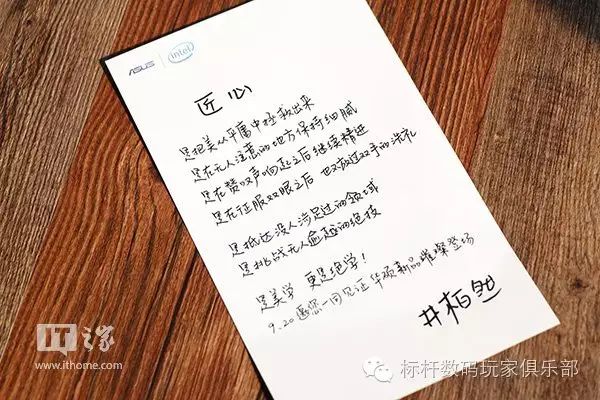 ASUS intel
匠心
是把美从平庸中拯救出来
是在无人注意的地方保持细腻
是在赞叹声响起之后继续精进
是在征服双眼之后 也不放过双手的洗礼
是抵达没人涉足过的领域
是挑战无人逾越的绝技
是美学 更是绝学!
9.20邀您一同见证华硕新品璀璨登场
井柏然
IT之家
www.ithome.com
标杆数码玩家俱乐部